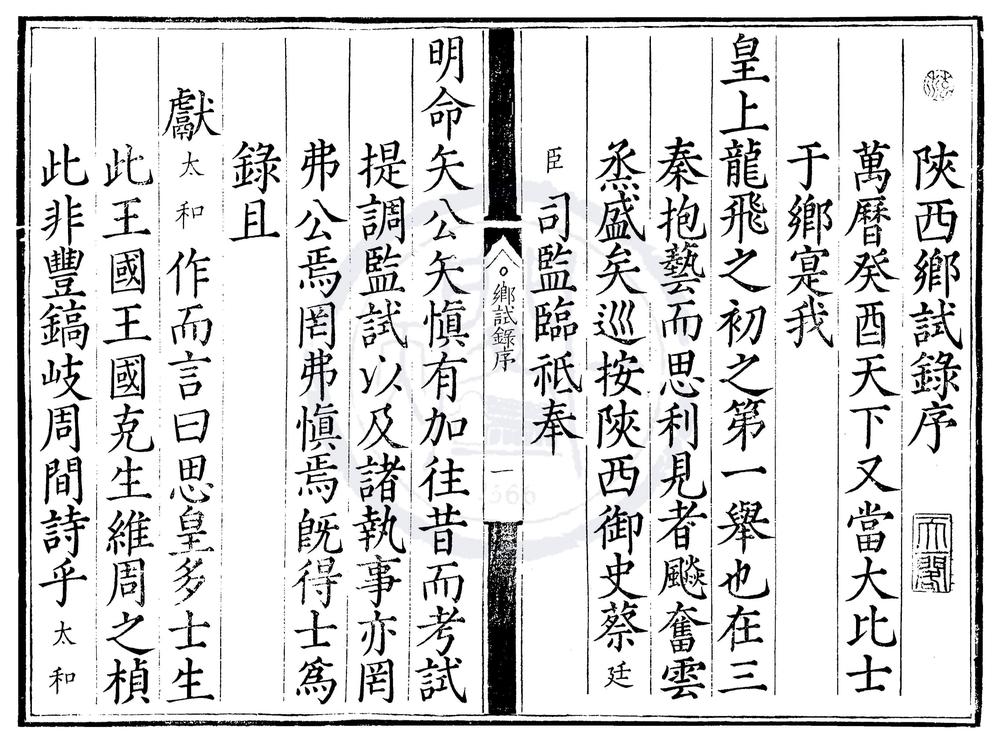 陝西鄉試錄序
萬曆癸酉天下又當大比士
于鄉寔我
皇上龍飛之初之第一舉也在三
秦抱藝而思利見者飈奮雲
烝盛矣巡按陝西御史蔡廷
臣司監臨祗奉
鄉試錄序
一
明命矢公矢愼有加往昔而考試
提調監試以及諸執事亦罔
弗公焉罔弗愼焉旣得士爲
錄且
獻太和作而言曰思皇多士生
此王國王國克生維周之楨
此非豐鎬岐周間詩乎太和